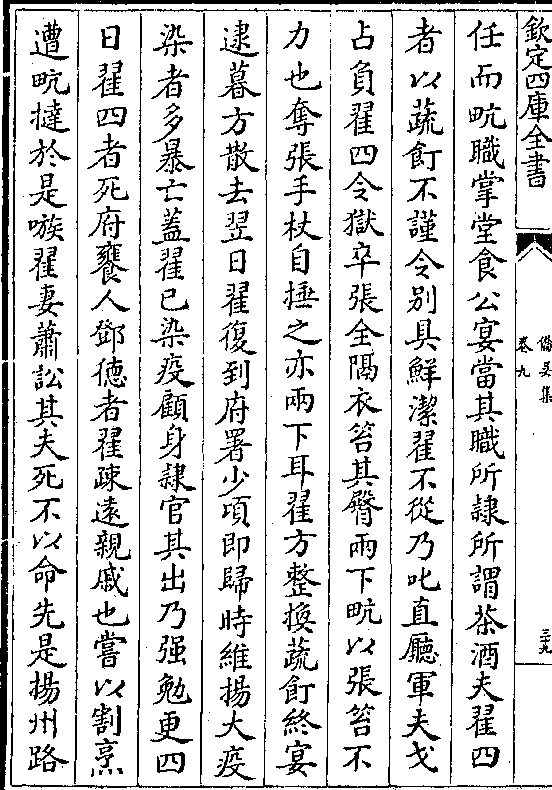 欽定四庫全書
僑吳集
卷九
三十九
任而㽘職掌堂食公宴當其職所隷所謂茶酒夫翟四
者以蔬飣不謹令別具鮮潔翟不從乃叱直廳軍夫戈
占負翟四令獄卒張全隔衣笞其臀兩下㽘以張笞不
力也奪張手杖自捶之亦兩下耳翟方整換蔬飣終宴
逮暮方散去翌日翟復到府署少項即歸時維揚大疫
染者多暴亡蓋翟已染疫顧身隷官其出乃强勉更四
日翟四者死府饔人鄧德者翟疎遠親戚也嘗以割烹
遭㽘撻於是嗾翟妻蕭訟其夫死不以命先是揚州路